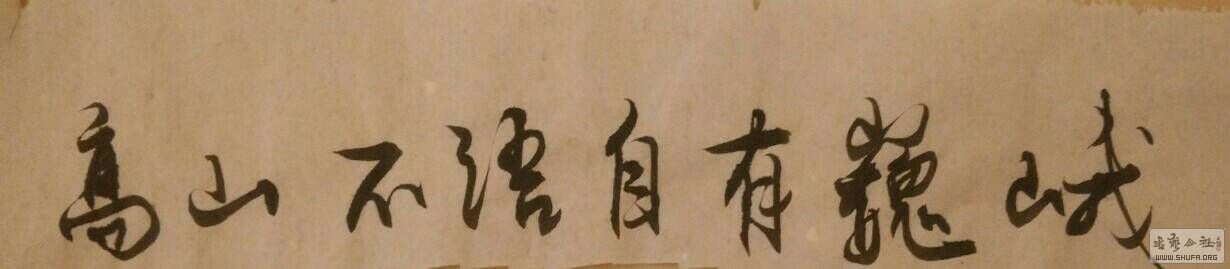 高山不语自有巍峨
书艺公社
WWW.SHUFA.ORG